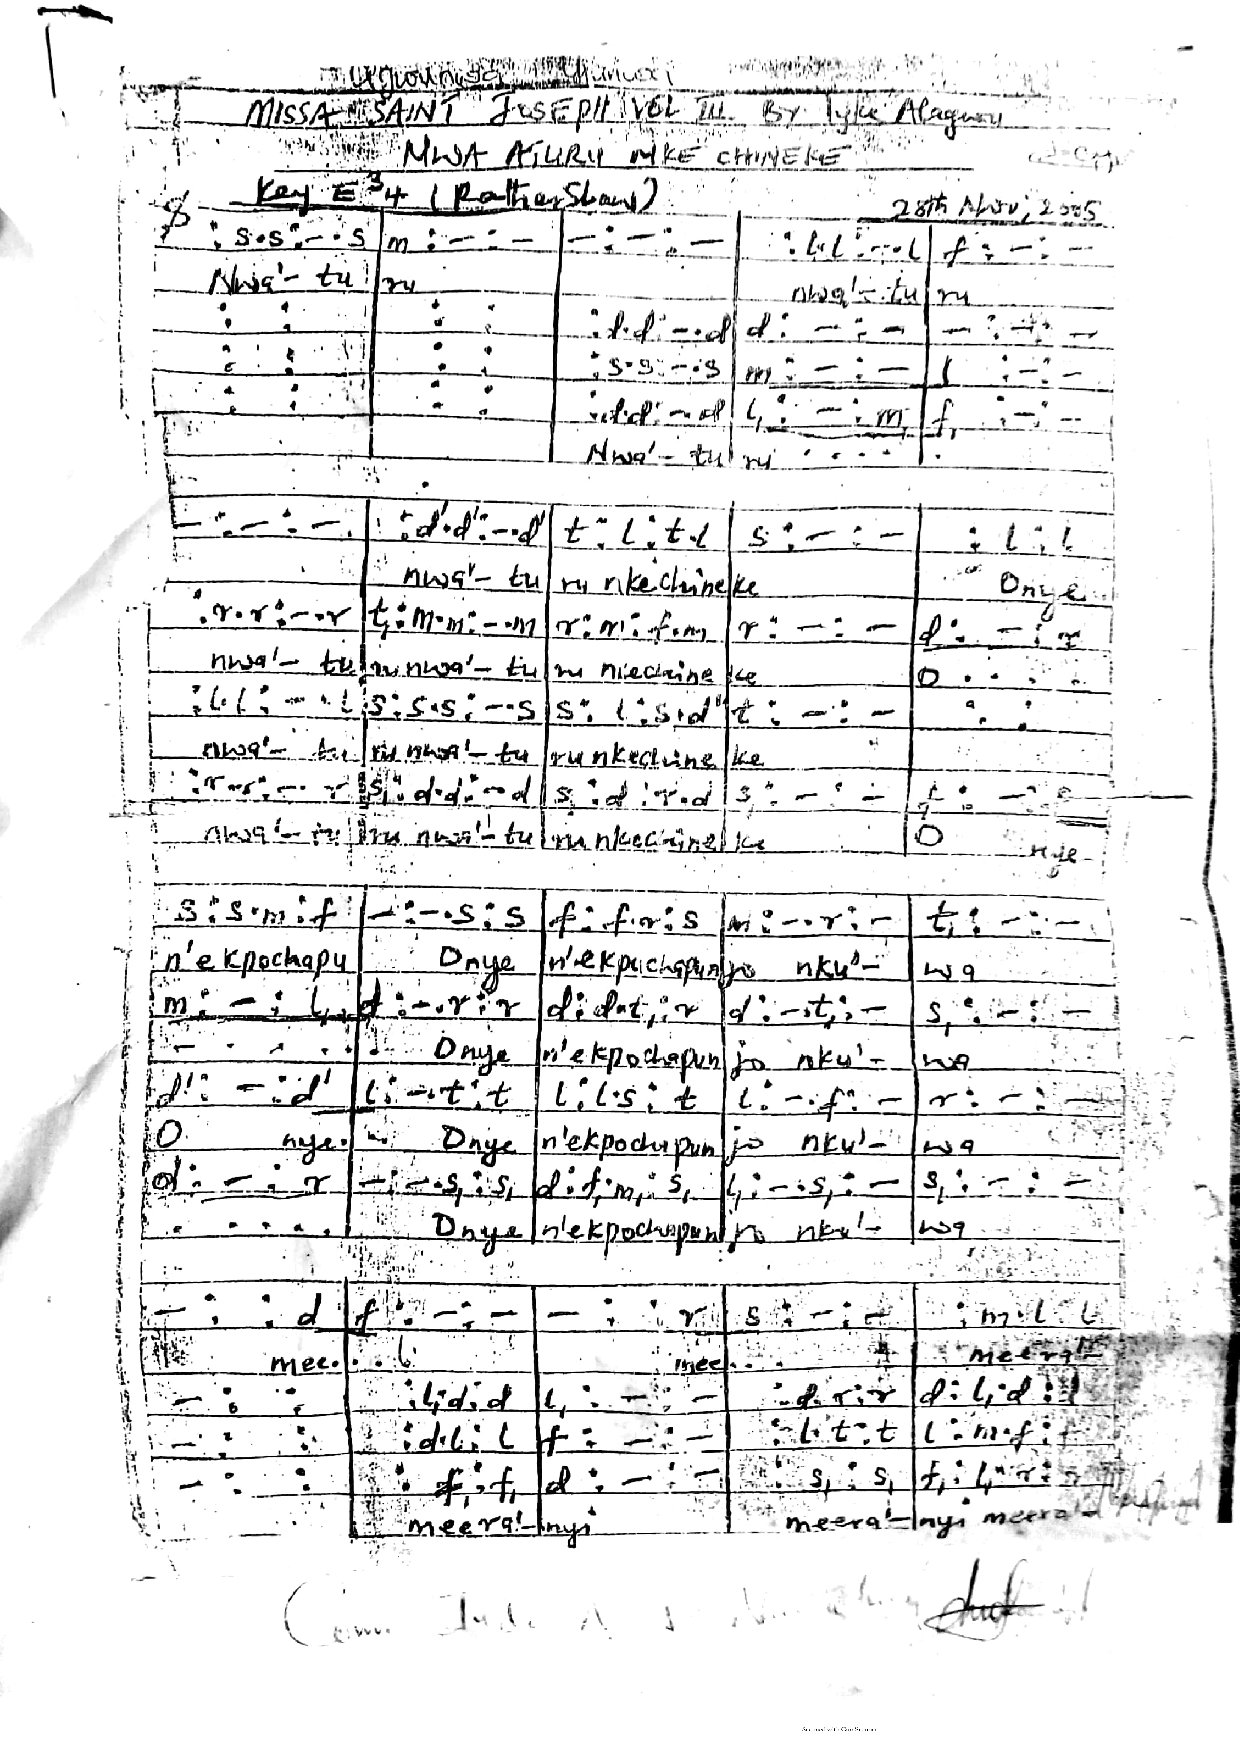 MISSA SAINT JOSEPH VOL III. By Iyke Alaguru
NWA ATURU NKE CHINEKE
Key E 3/4 (Rather Slow)
28th Nov, 2005
: s.s : -.s | m : - : - | - : - : - | : l.l : -.l | f : - : -
Nwa'- tu | ru | | nwa'- tu | ru
: : | : : | : d.d : -.d | d : - : - | - : - : -
: : | : : | : s.s : -.s | m : - : - | l : - : -
: : | : : | : d.d : -.d | l, : - : m, | f, : - : -
Nwa'- tu | ru . . . . | .
- : - : -. | : d'.d' : -.d' | t : l : t.l | s : - : - | : l : l
nwa'- tu | ru nkechine | ke | Onye
: r.r : -.r | t, : m.m : -.m | r : m : f.m | r : - : - | d : - : r
nwa'- tu | ru nwa'- tu | ru nkechine | ke | O . . . .
: l.l : -.l | s : s.s : -.s | s : l : s.d' | t : - : - | : :
nwa'- tu | ru nwa'- tu | ru nkechine | ke
: r.r : -.r | s, : d.d : -.d | s, : d : r.d | s, : - : -
nwa'- tu | ru nwa'- tu | ru nkechine | ke | O nye
s : s.m : f | - : -.s : s | f : f.r : s | m : -.r : - | t, : - : -
n'ekpochapu | Onye | n'ekpochapun | jo nku'- | wa
m : - : l, | d : -.r : r | d : d.t, : r | d : -.t, : - | s, : - : -
- . . . . . | Onye | n'ekpochapun | jo nku'- | wa
d' : - : d' | l : -.t : t | l : l.s : t | l : -.f : - | r : - : -
O nye. | Onye | n'ekpochapun | jo nku'- | wa
d : - : r | - : -.s, : s, | d : f,.m, : s, | l, : -.s, : - | s, : - : -
. . . . . | Onye | n'ekpochapun | jo nku'- | wa
- : : d | f : - : - | - : : r | s : - : - | : m.l : l
mee. | . . | mee. . . | | meera'-
- : : | : l,.d : d | l, : - : - | : d.r : r | d : l,.d : d
- : : | : d.l : l | f : - : - | : l.t : t | l : m.f : f
- : : | : f, : f, | d : - : - | : s, : s, | f, : l,.r : r
meera'- | nyi | meera'- | nyi meera'-